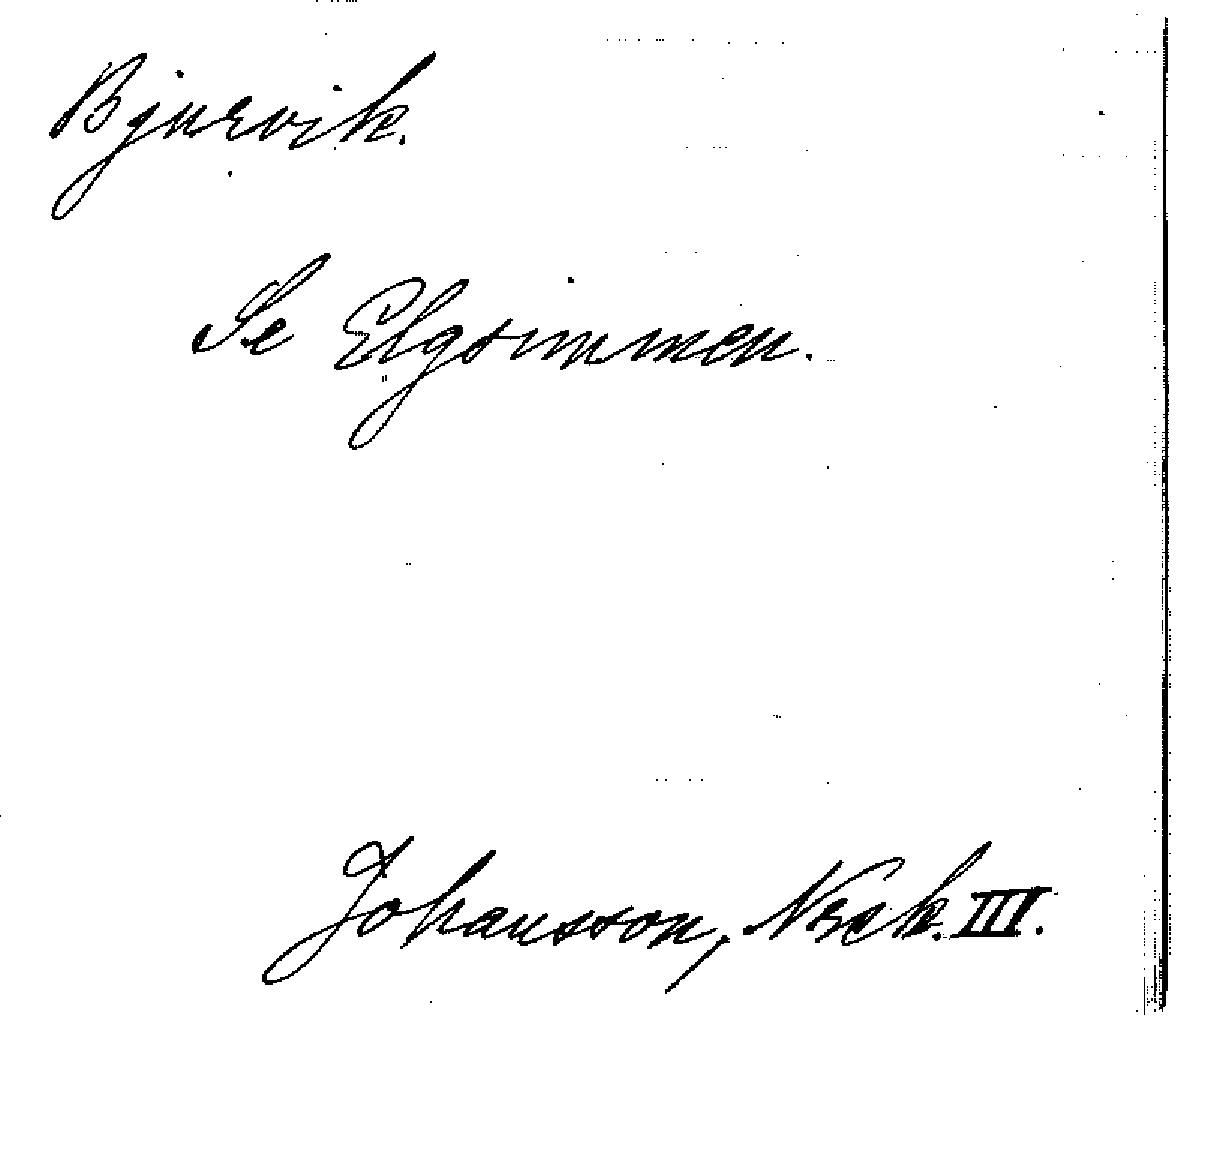 Bjurvik.
Se Elgsimmen.
Johansson, Norak. III.